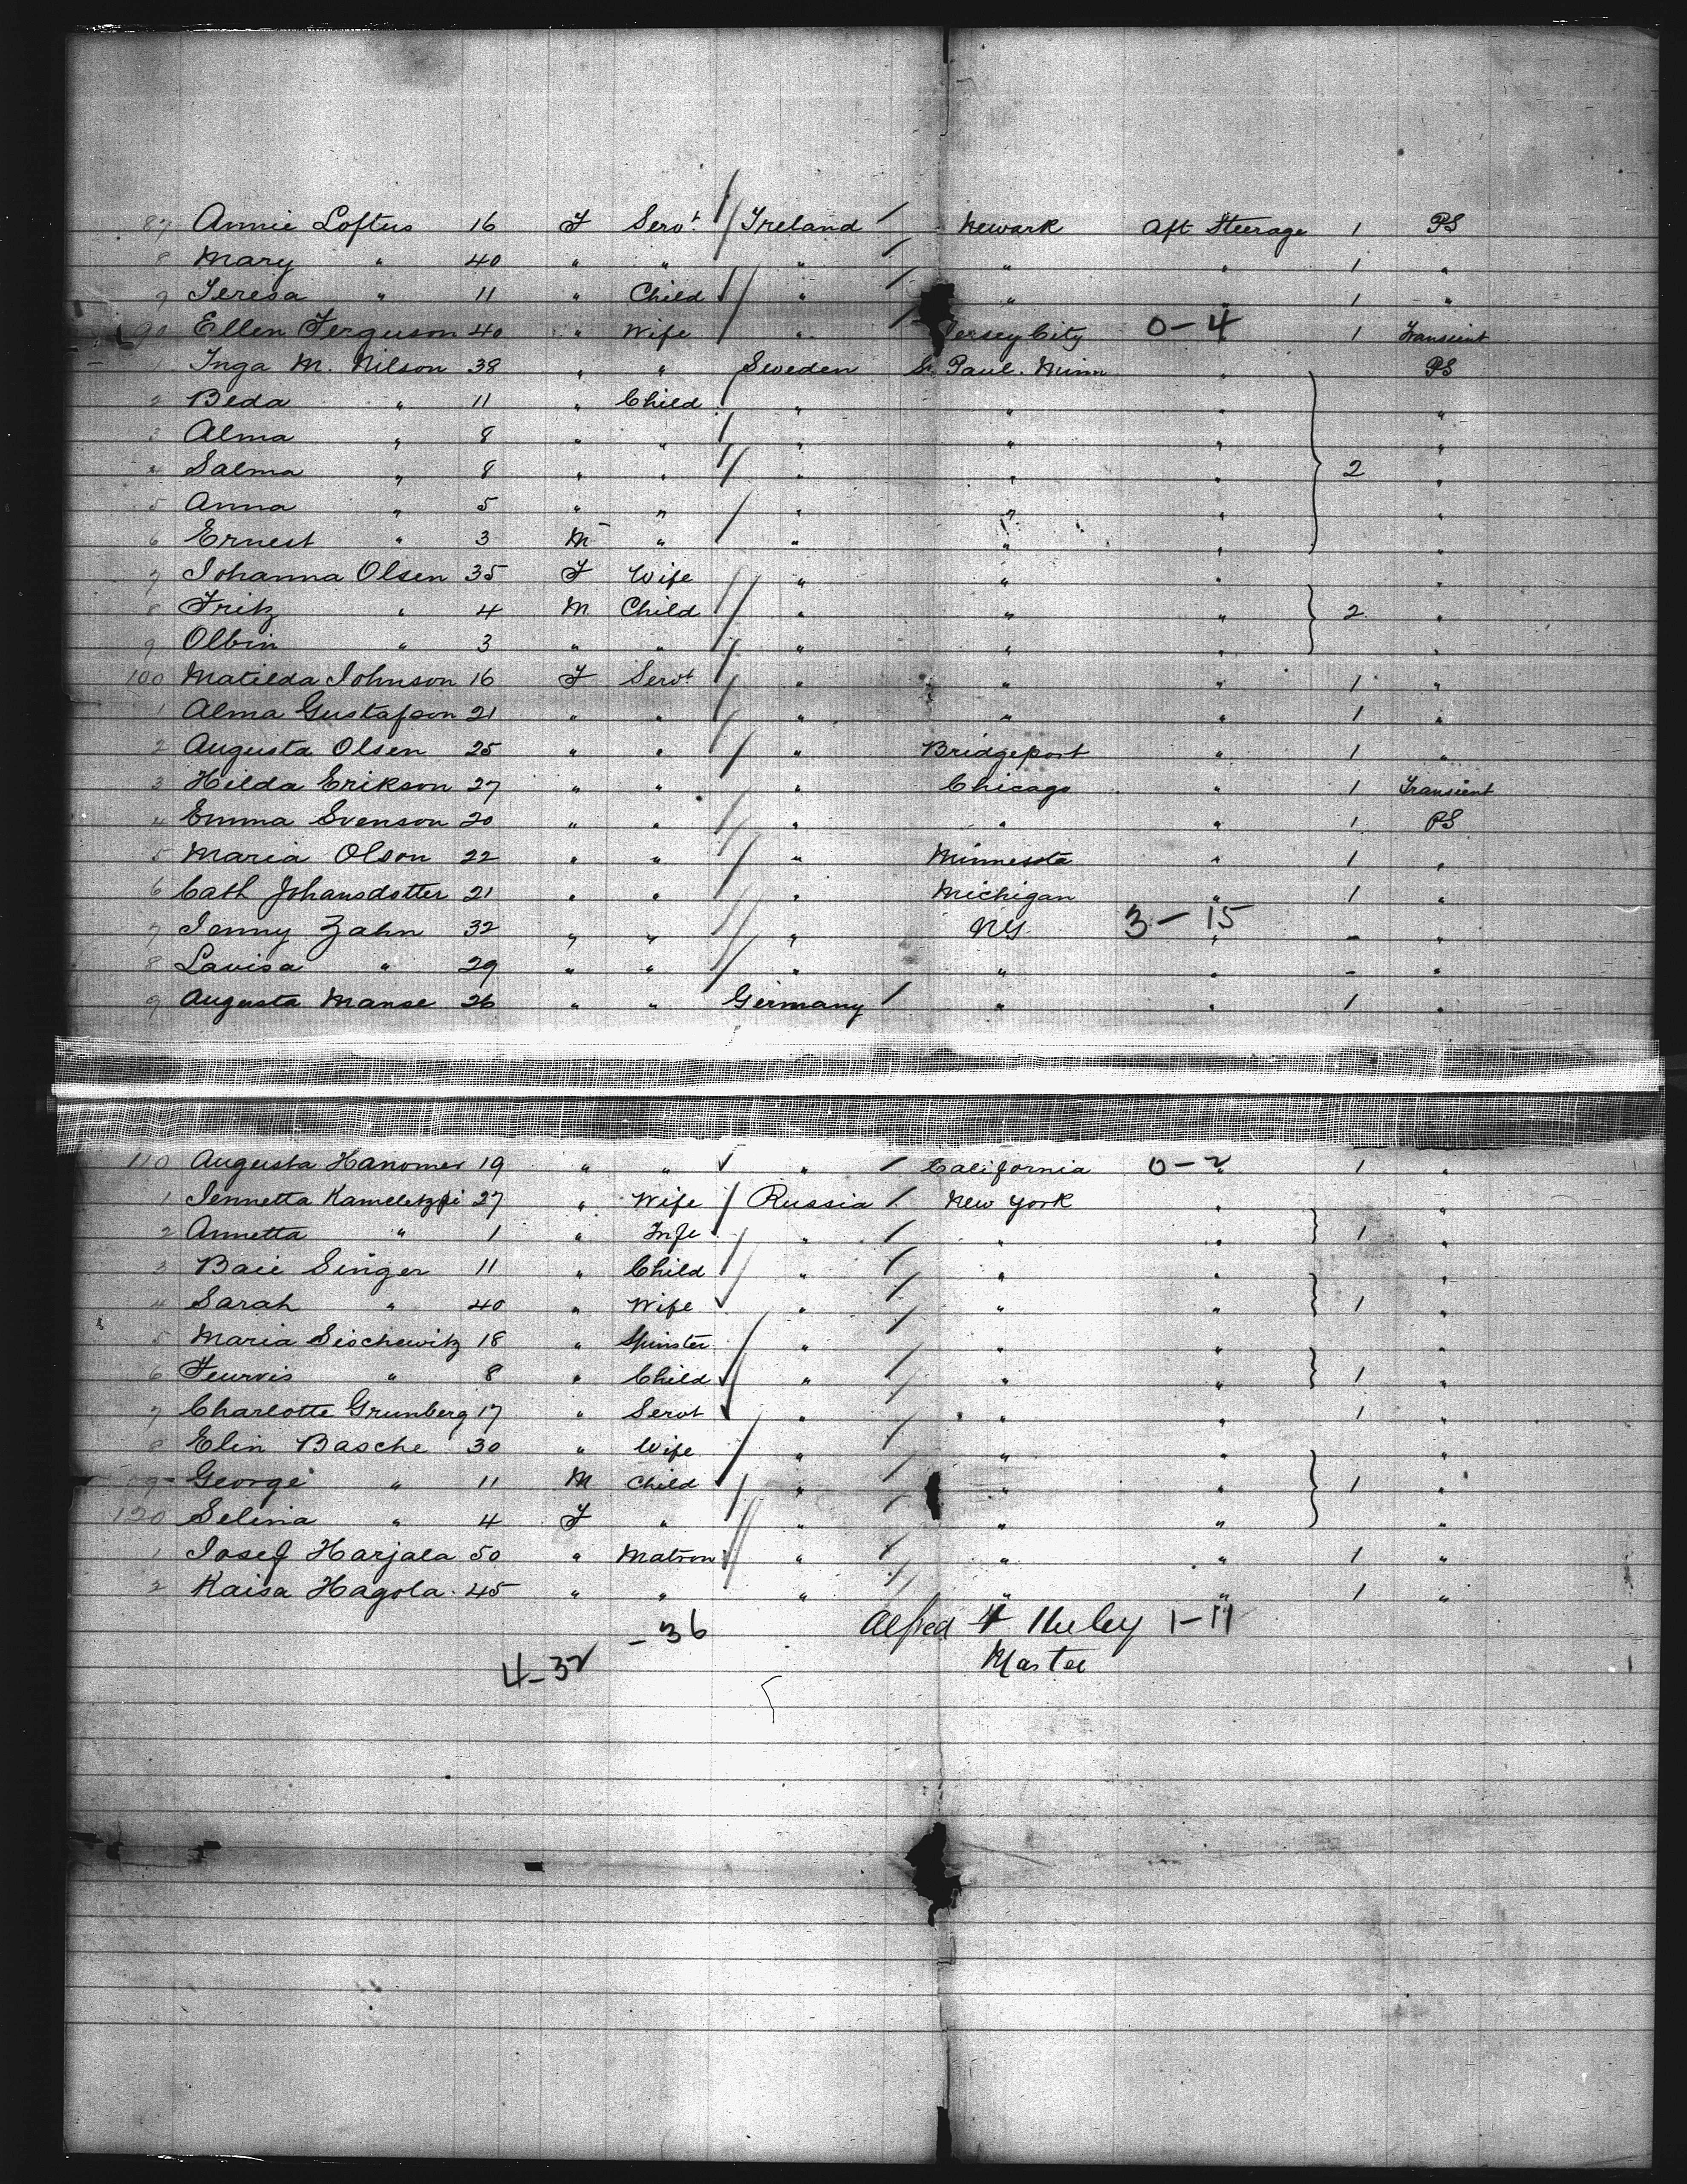 87 Annie Loftus 16 F Servt Ireland Newark Aft Steerage 1 PS
8 Mary " 40 " " " " " 1 "
9 Teresa " 11 " Child " " " 1 "
90 Ellen Ferguson 40 " Wife " Jersey City 0-4 " 1 Transient
1 Inga M. Nilson 38 " " Sweden St Paul. Minn " PS
2 Beda " 11 " Child " " " "
3 Alma " 8 " " " " " "
4 Salma " 8 " " " " " 2 "
5 Anna " 5 " " " " " "
6 Ernest " 3 M " " " " "
7 Johanna Olsen 35 F Wife " " " "
8 Fritz " 4 M Child " " " 2 "
9 Olbin " 3 " " " " " "
100 Matilda Johnson 16 F Servt " " " 1 "
1 Alma Gustafson 21 " " " " " 1 "
2 Augusta Olsen 25 " " " Bridgeport " 1 "
3 Hilda Erikson 27 " " " Chicago " 1 Transient
4 Emma Svenson 20 " " " " " 1 PS
5 Maria Olson 22 " " " Minnesota " 1 "
6 Cath Johansdotter 21 " " " Michigan " 1 "
7 Jenny Zahn 32 " " " NY 3-15 " - "
8 Lavisa " 29 " " " " " - "
9 Augusta Manse 26 " " Germany " " 1 "
110 Augusta Hanomer 19 " " " California 0-2 " 1 "
1 Jennetta 27 " Wife Russia New York " "
2 Annetta " 1 " Inft " " " 1 "
3 Baie Singer 11 " Child " " " "
4 Sarah " 40 " Wife " " " 1 "
5 Maria Sischewitz 18 " Spinster " " " "
6 Feurvis " 8 " Child " " " 1 "
7 Charlotte Grunberg 17 " Servt " " " 1 "
8 Elin Basche 30 " Wife " " " "
9 George " 11 M Child " " " 1 "
120 Selina " 4 F " " " " "
1 Josef Harjala 50 " Matron " " " 1 "
2 Kaisa Hagola 45 " " " " " 1 "
-36 Alfred 1-11
4-32 Master